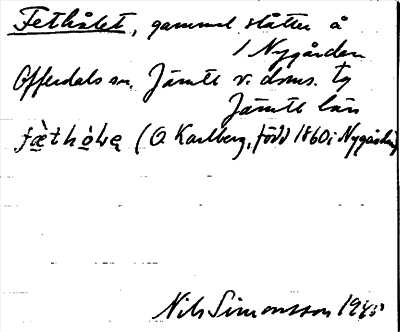 Fethålet, gammal slåtter å
/ Nygården
Offerdals sn. Jämtl v. doms. tg
Jämtl län
fæ̀thó̱lę (O Karlberg, född 1860 i Nygården)
Nils Simonsson 1945